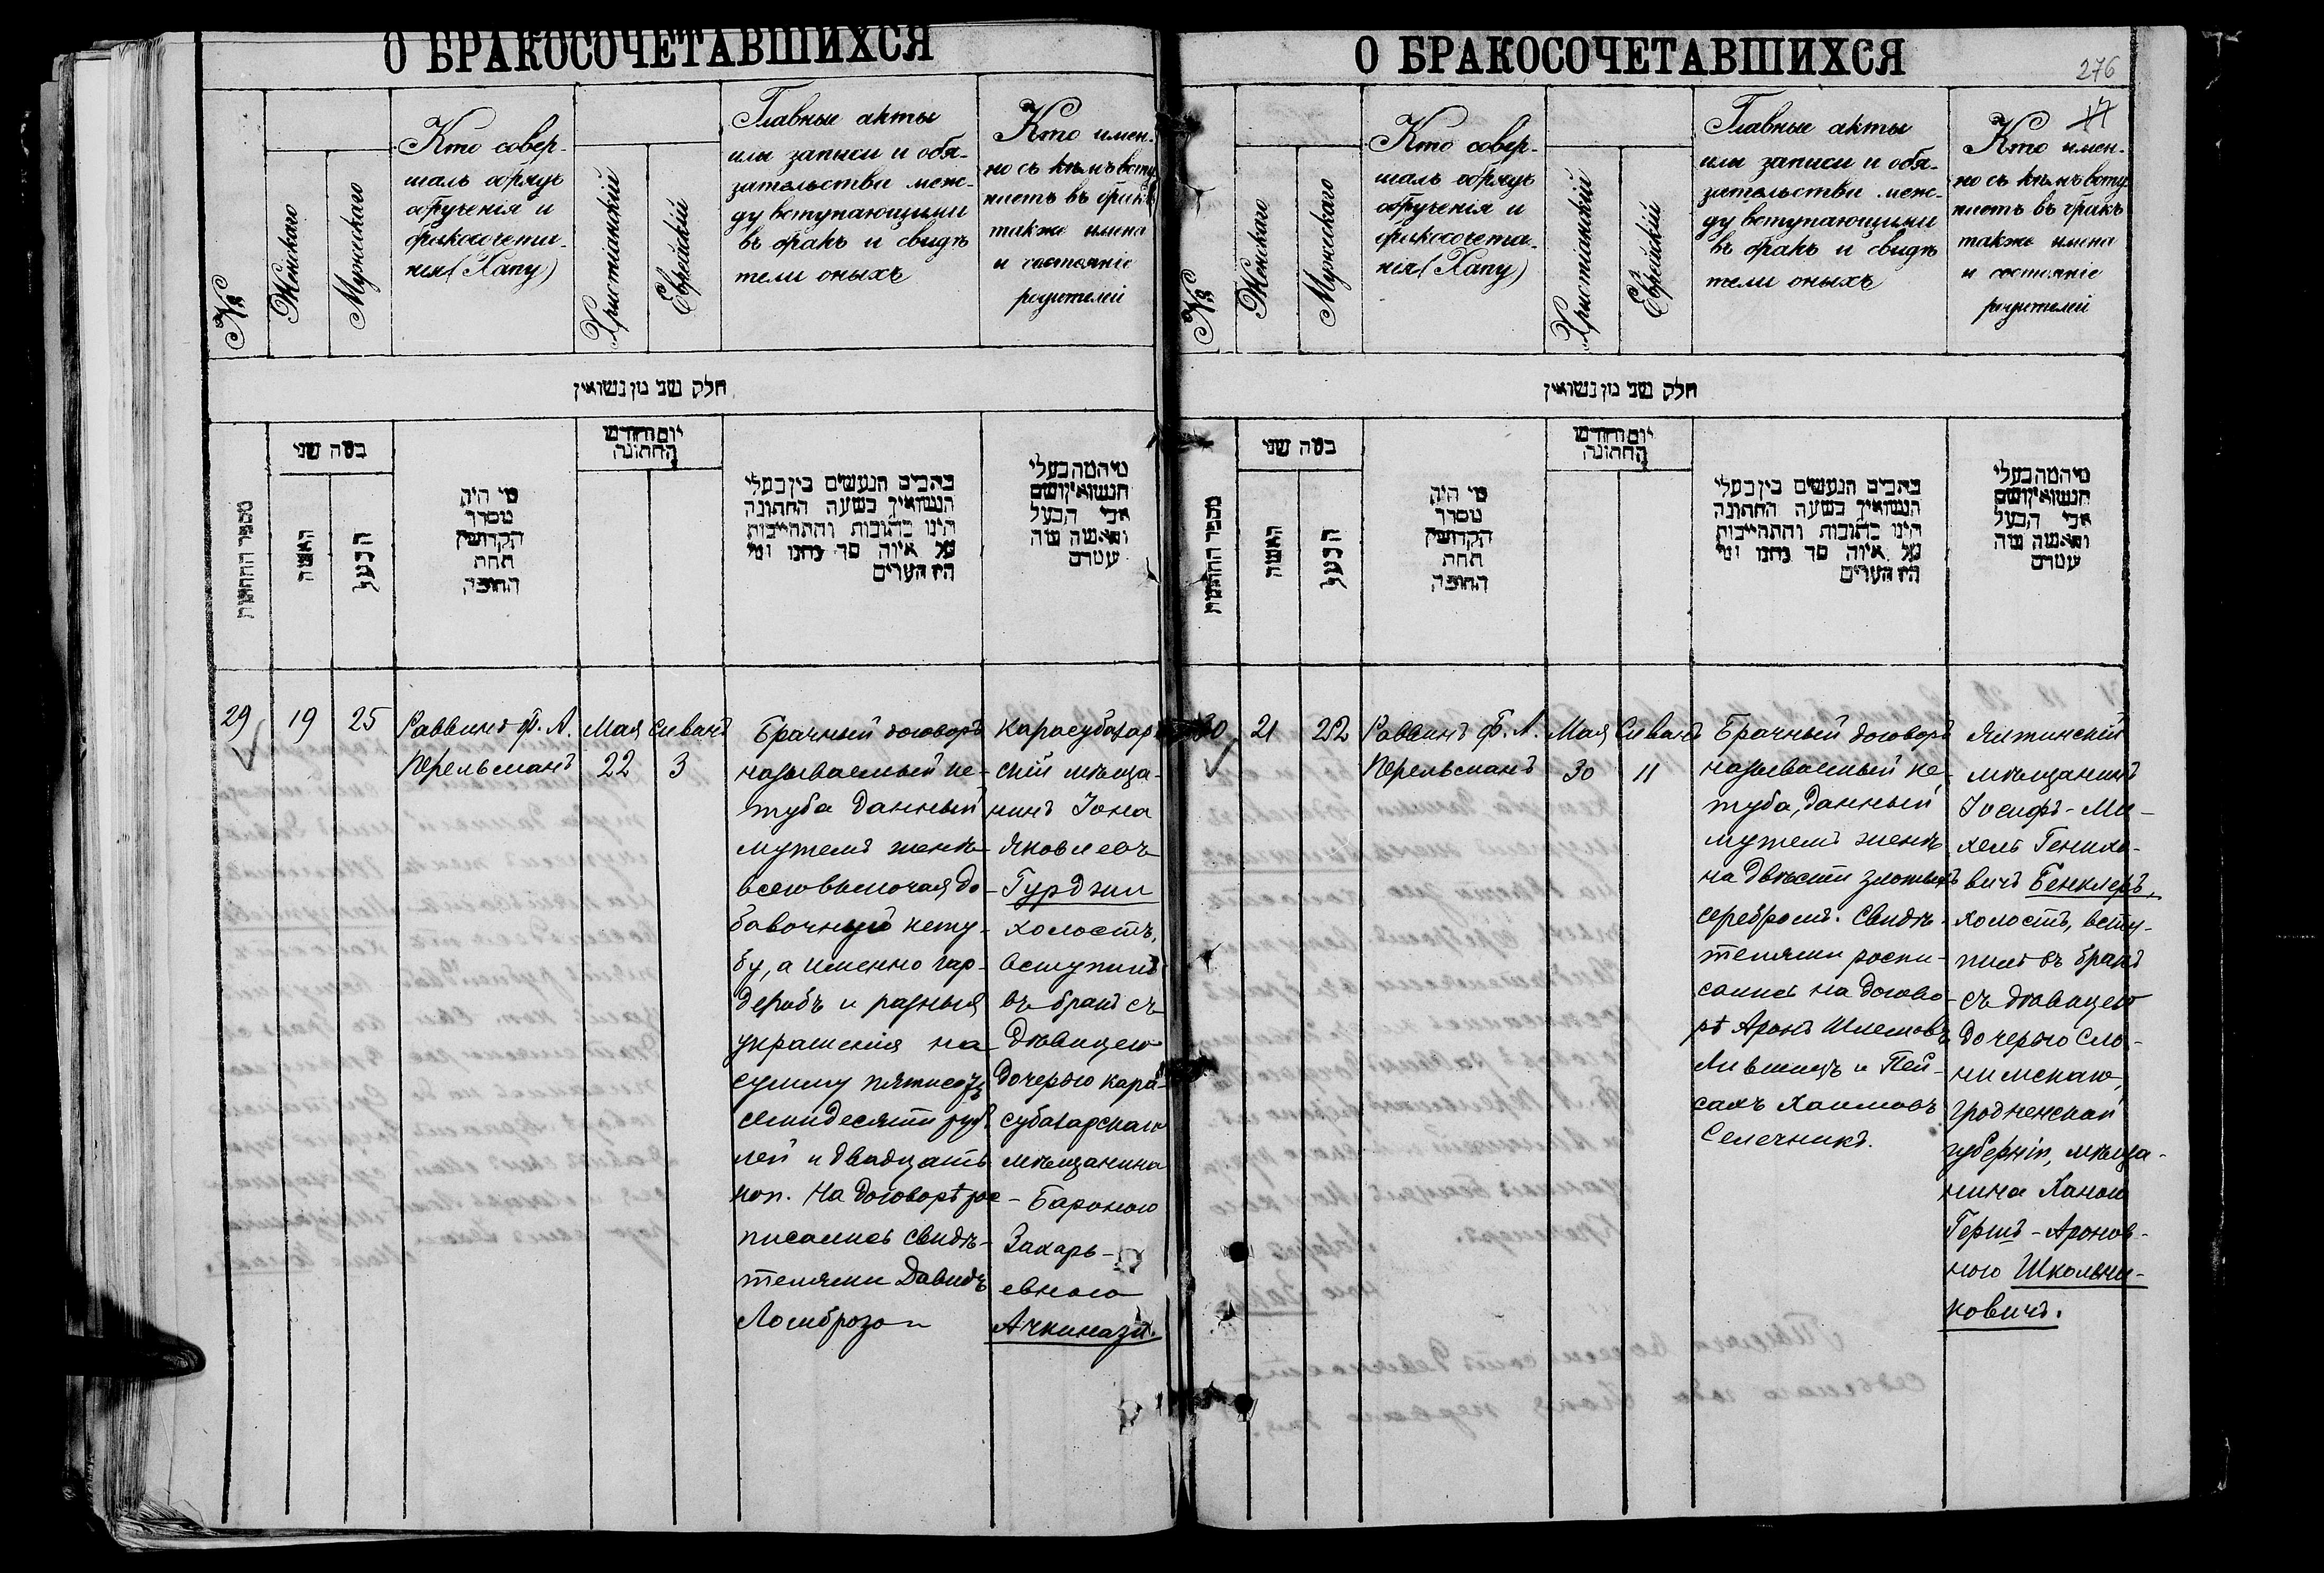 О БРАКОСОЧЕТАВШИХСЯ
№
Женскаго
Мужескаго
Кто совер-
шалъ обрядъ
обрученія и
бракосочета-
нія (Хапу)
Христіанскій
Еврейскій
Главные акты
или записи и обя-
зательства меж-
ду вступающими
въ бракъ и свидѣ
тели оныхъ
Кто имен-
но съ кѣмъ всту
паетъ въ бракъ
также имена
и состояніе
родителей
חלק שני מן נשואין
מספר החתונות
כמה שני
האשה
הבעל
מי היה
מסדר
הקדושין
תחת
החופה
יום וחודש
החתונה
כתבים הנעשים בין בעלי
הנשואין בשעה החתונה
היינו כתובות והתחייבות
על איזה סך נתנו ומי
היו העדים
מי המה בעלי
הנשואין ושם
אבי הבעל
והאשה
29
19
25
Раввинъ Ф. А.
Перельманъ
Мая
22
Сиванъ
3
Брачный договоръ
называемый ке-
туба данный
мужемъ женѣ
всего включая до-
бавочную кету-
бу, а именно гар-
деробъ и разныя
украшенія на
сумму пятисотъ
семидесяти руб
лей и двадцать
коп. На договорѣ рос-
писались свидѣ-
телями Давидъ
Ломброзо и
Карасубазар
скій мѣща-
нинъ Іона
Яковлевъ
Гурджи
холостъ,
вступилъ
въ бракъ съ
дѣвицею
дочерью кара-
субазарскаго
мѣщанина
Бароною
Захарь-
евною
Ачкинази.
О БРАКОСОЧЕТАВШИХСЯ
276
17
№
Женскаго
Мужескаго
Кто совер-
шалъ обрядъ
обрученія и
бракосочета-
нія (Хапу)
Христіанскій
Еврейскій
Главные акты
или записи и обя-
зательства меж-
ду вступающими
въ бракъ и свидѣ
тели оныхъ
Кто имен-
но съ кѣмъ всту
паетъ въ бракъ
также имена
и состояніе
родителей
חלק שני מן נשואין
מספר החתונות
כמה שני
האשה
הבעל
מי היה
מסדר
הקדושין
תחת
החופה
יום וחודש
החתונה
כתבים הנעשים בין בעלי
הנשואין בשעה החתונה
היינו כתובות והתחייבות
על איזה סך נתנו ומי
היו העדים
מי המה בעלי
הנשואין ושם
אבי הבעל
והאשה
30
21
22
Раввинъ Ф. А.
Перельманъ
Мая
30
Сиванъ
11
Брачный договоръ
называемый ке-
туба, данный
мужемъ женѣ
на двѣсти злотыхъ
серебромъ. Свидѣ-
телями роспи-
сались на догово-
рѣ Аронъ Шлемовъ
Лившицъ и Пей-
сахъ Хаимовъ
Селечникъ.
Ялтинскій
мѣщанинъ
Іосифъ-Ми-
хель Генихо-
вичъ Бенклеръ,
холостъ, всту-
пилъ въ бракъ
съ дѣвицею
дочерью Сло-
нимскаго,
гродненской
губерніи, мѣща-
нина Ханою
Гершъ-Аронов-
ною Школьни-
ковичъ.